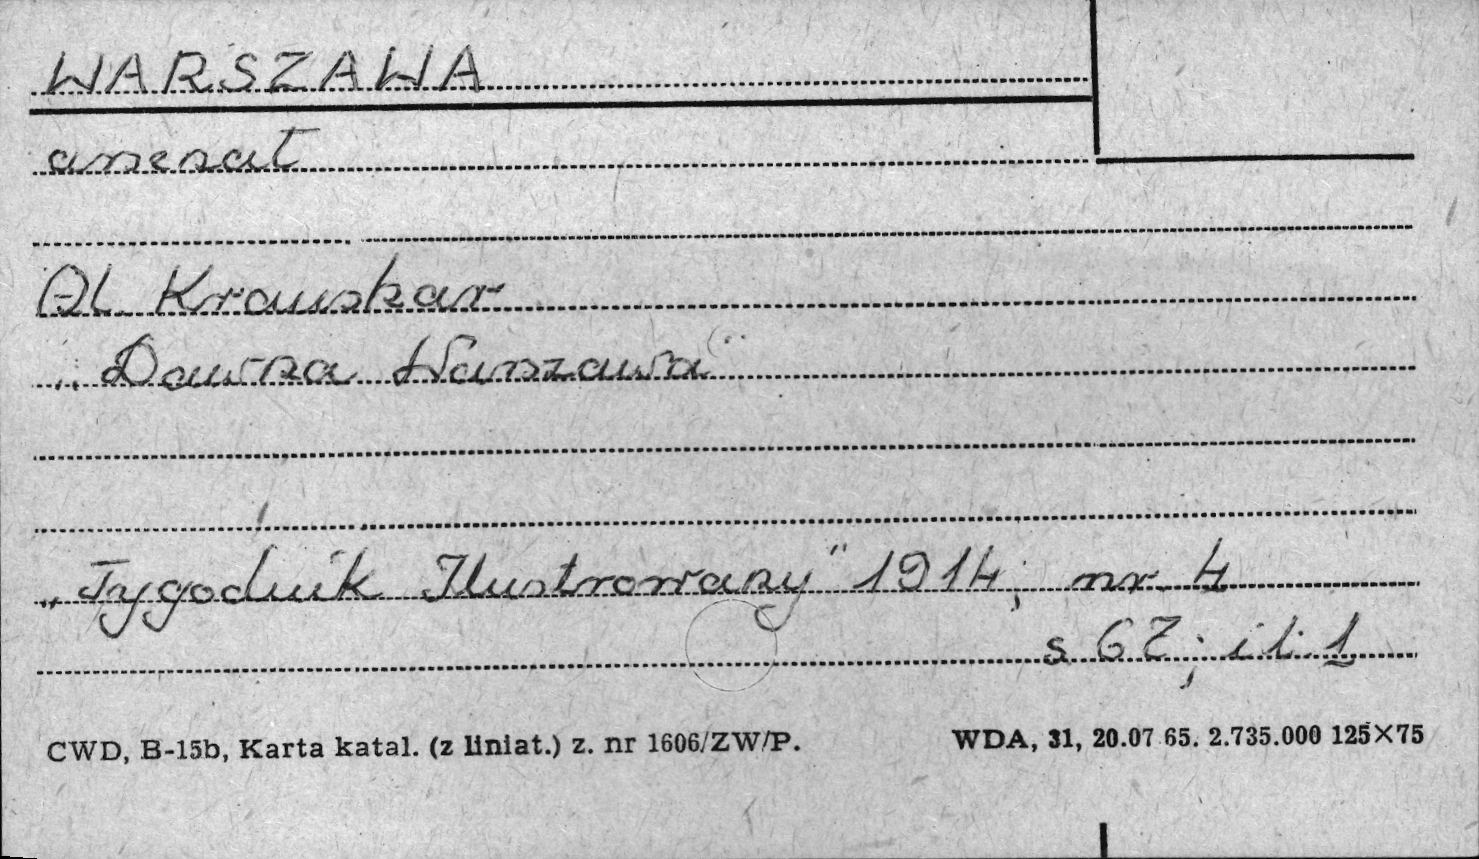 WARSZAWA
arsenał
Al. Kraushar
„Dawna Warszawa"
„Tygodnik Ilustrowany" 1914; nr. 4
s 67; il. 1
CWD, B-15b, Karta katal. (z liniat.) z. nr 1606/ZW/P.
WDA, 31, 20.07 65. 2.735.000 125×75